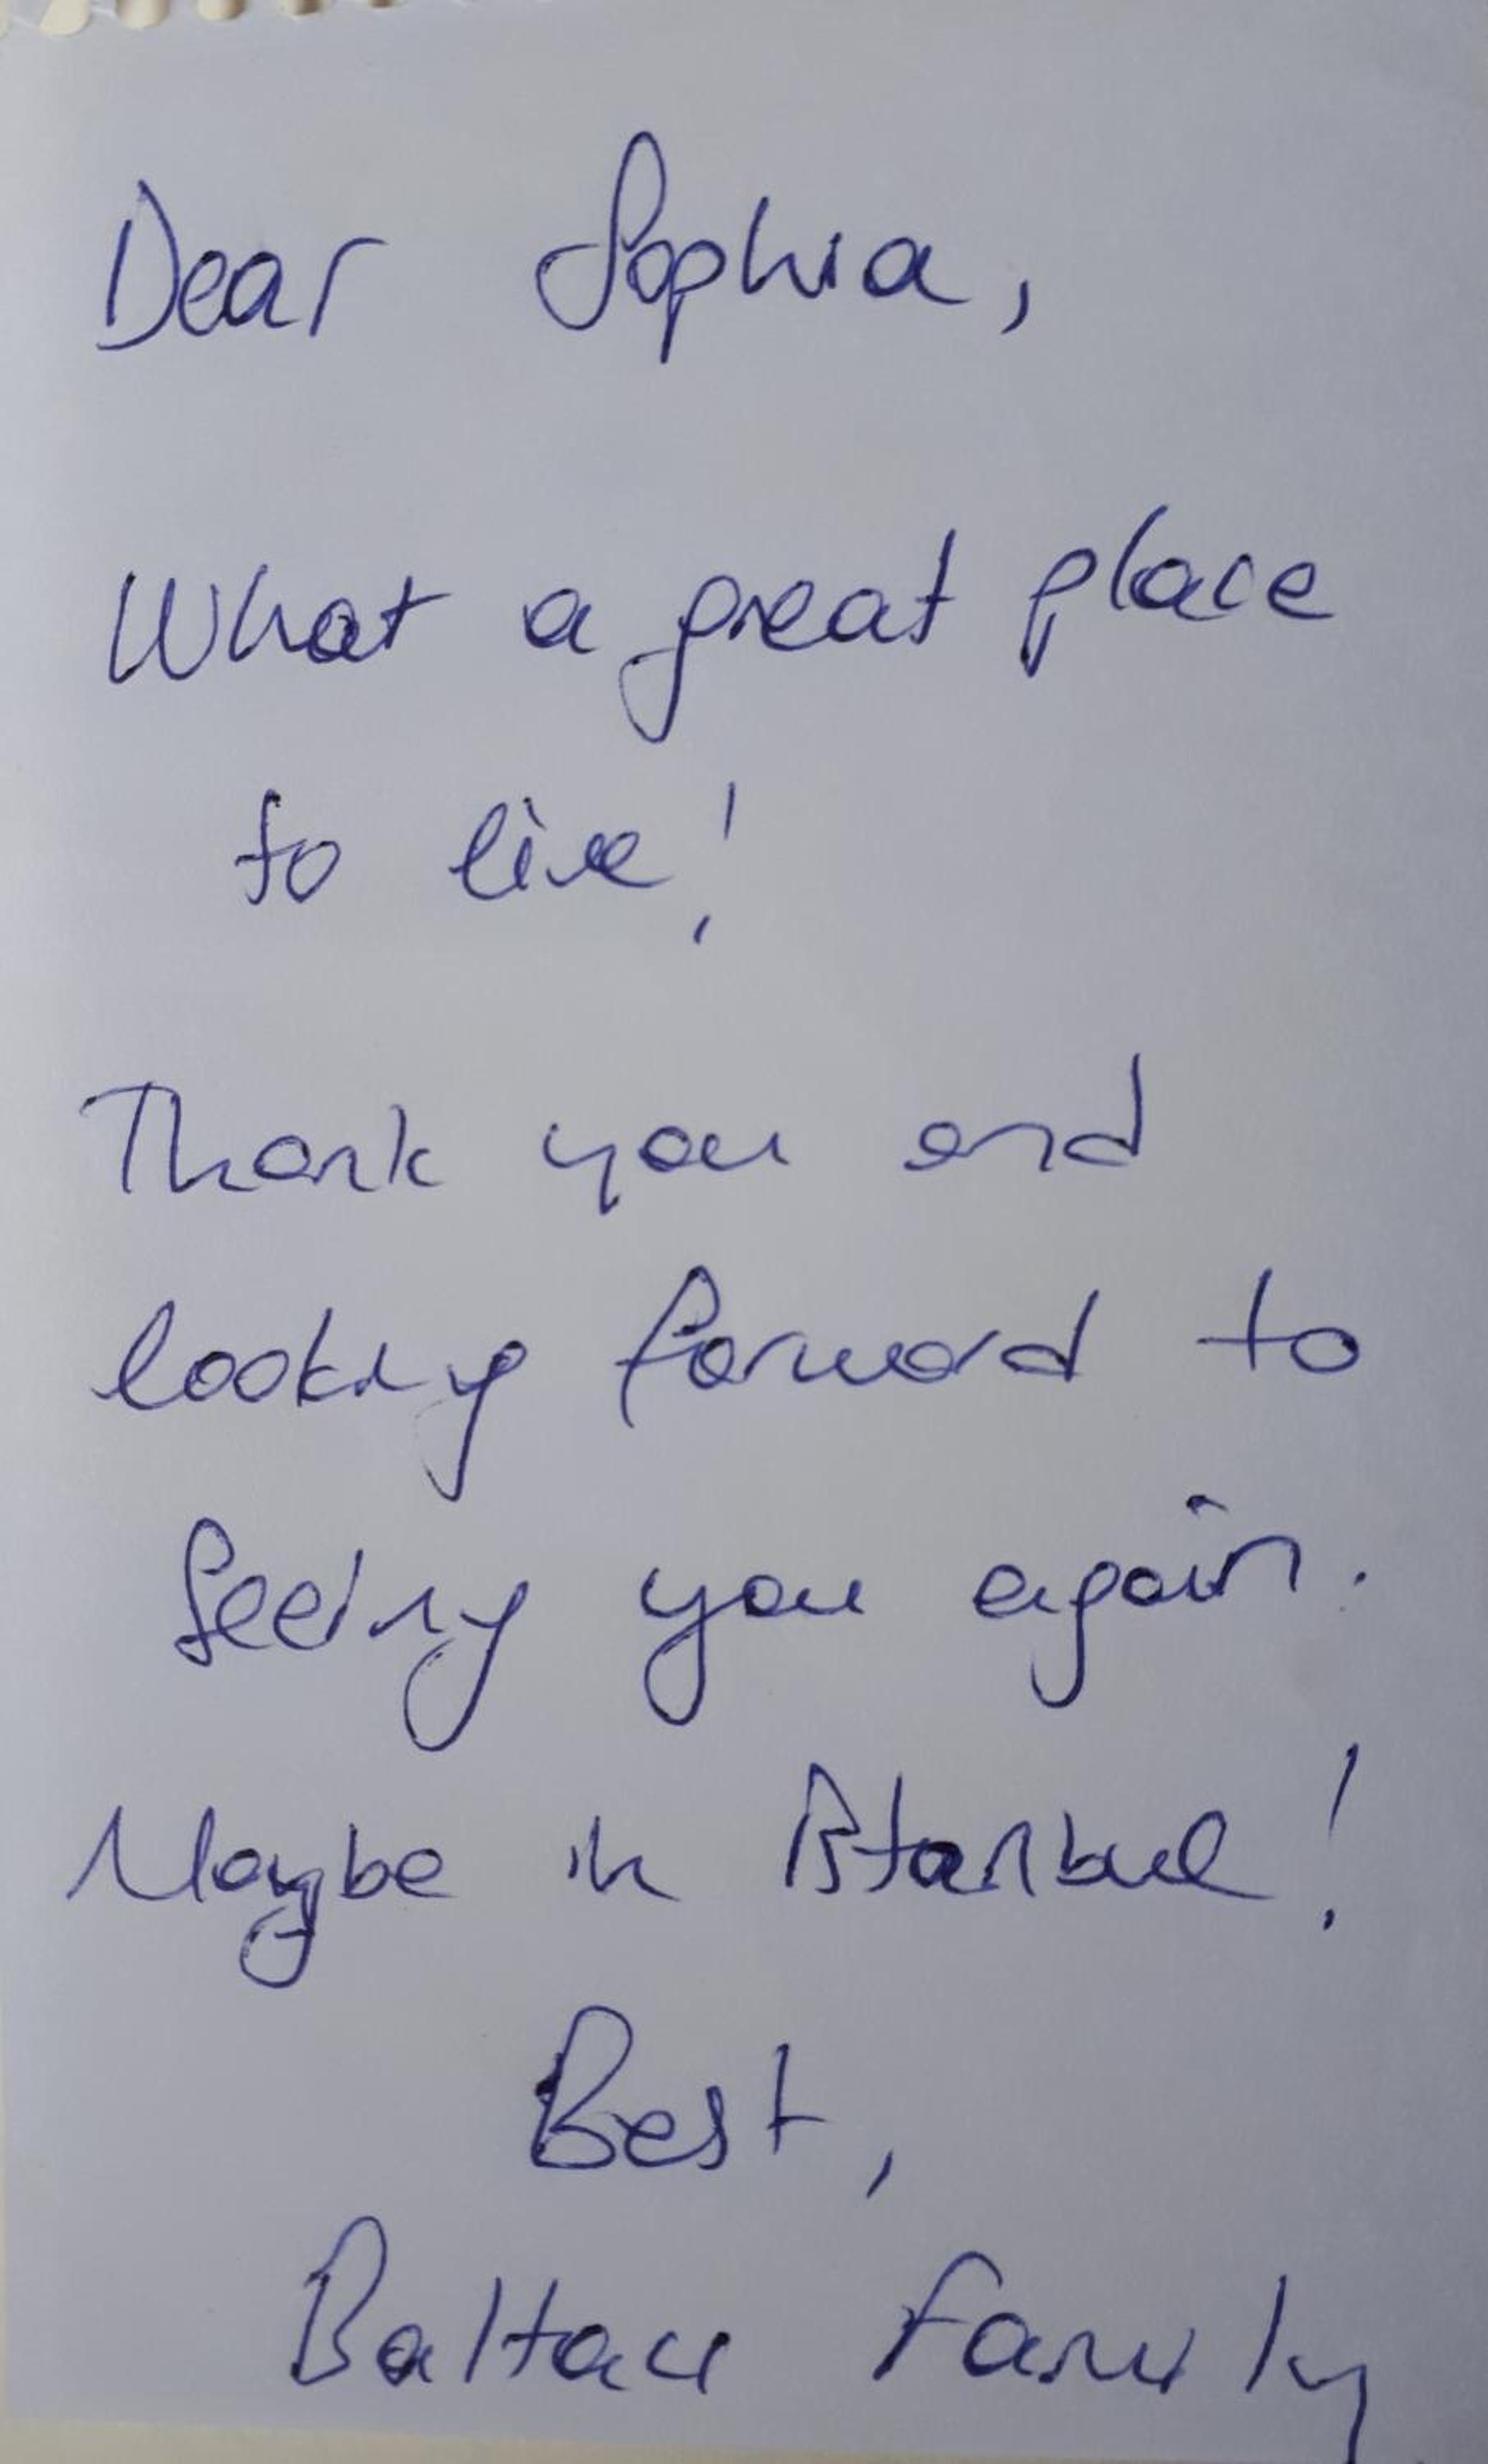 Dear Sophia,
What a great place
to live!
Thank you and
looking forward to
seeing you again.
Maybe in Istanbul!
Best,
Baltacı Family